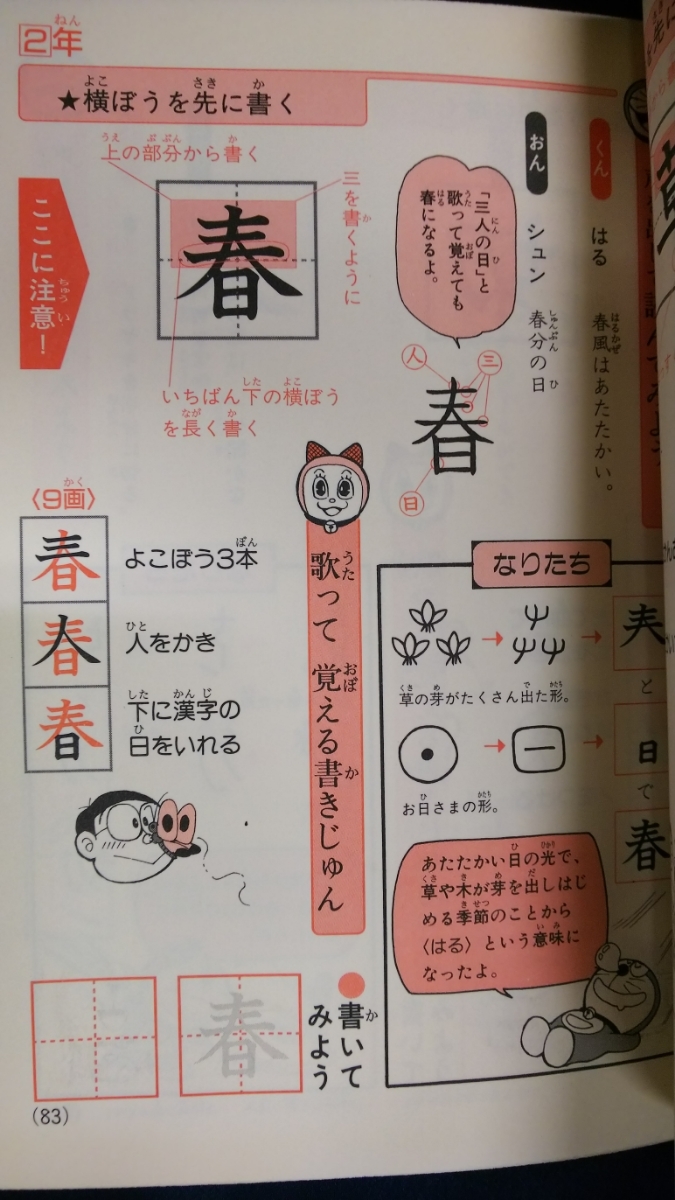 2年
★横ぼうを先に書く
上の部分から書く
三を書くように
ここに注意！
春
いちばん下の横ぼう
を長く書く
くん
はる
春風はあたたかい。
おん
シュン
春分の日
「三人の日」と
歌って覚えても
春になるよ。
人
三
春
日
〈9画〉
春
よこぼう3本
春
人をかき
春
下に漢字の
日をいれる
歌って 覚える書きじゅん
なりたち
草の芽がたくさん出た形。
と
日
お日さまの形。
で
春
あたたかい日の光で、
草や木が芽を出しはじ
める季節のことから
〈はる〉という意味に
なったよ。
●書いて
みよう
春
(83)